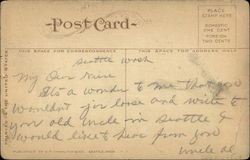 Post Card
PLACE
STAMP HERE
DOMESTIC
ONE CENT
FOREIGN
TWO CENTS
THIS SPACE FOR CORRESPONDENCE
THIS SPACE FOR ADDRESS ONLY
Seattle Wash
My Dear
It's a wonder to me that you
wouldn't get loose and write to
your old uncle in Seattle I
would like to hear from you
Uncle Al